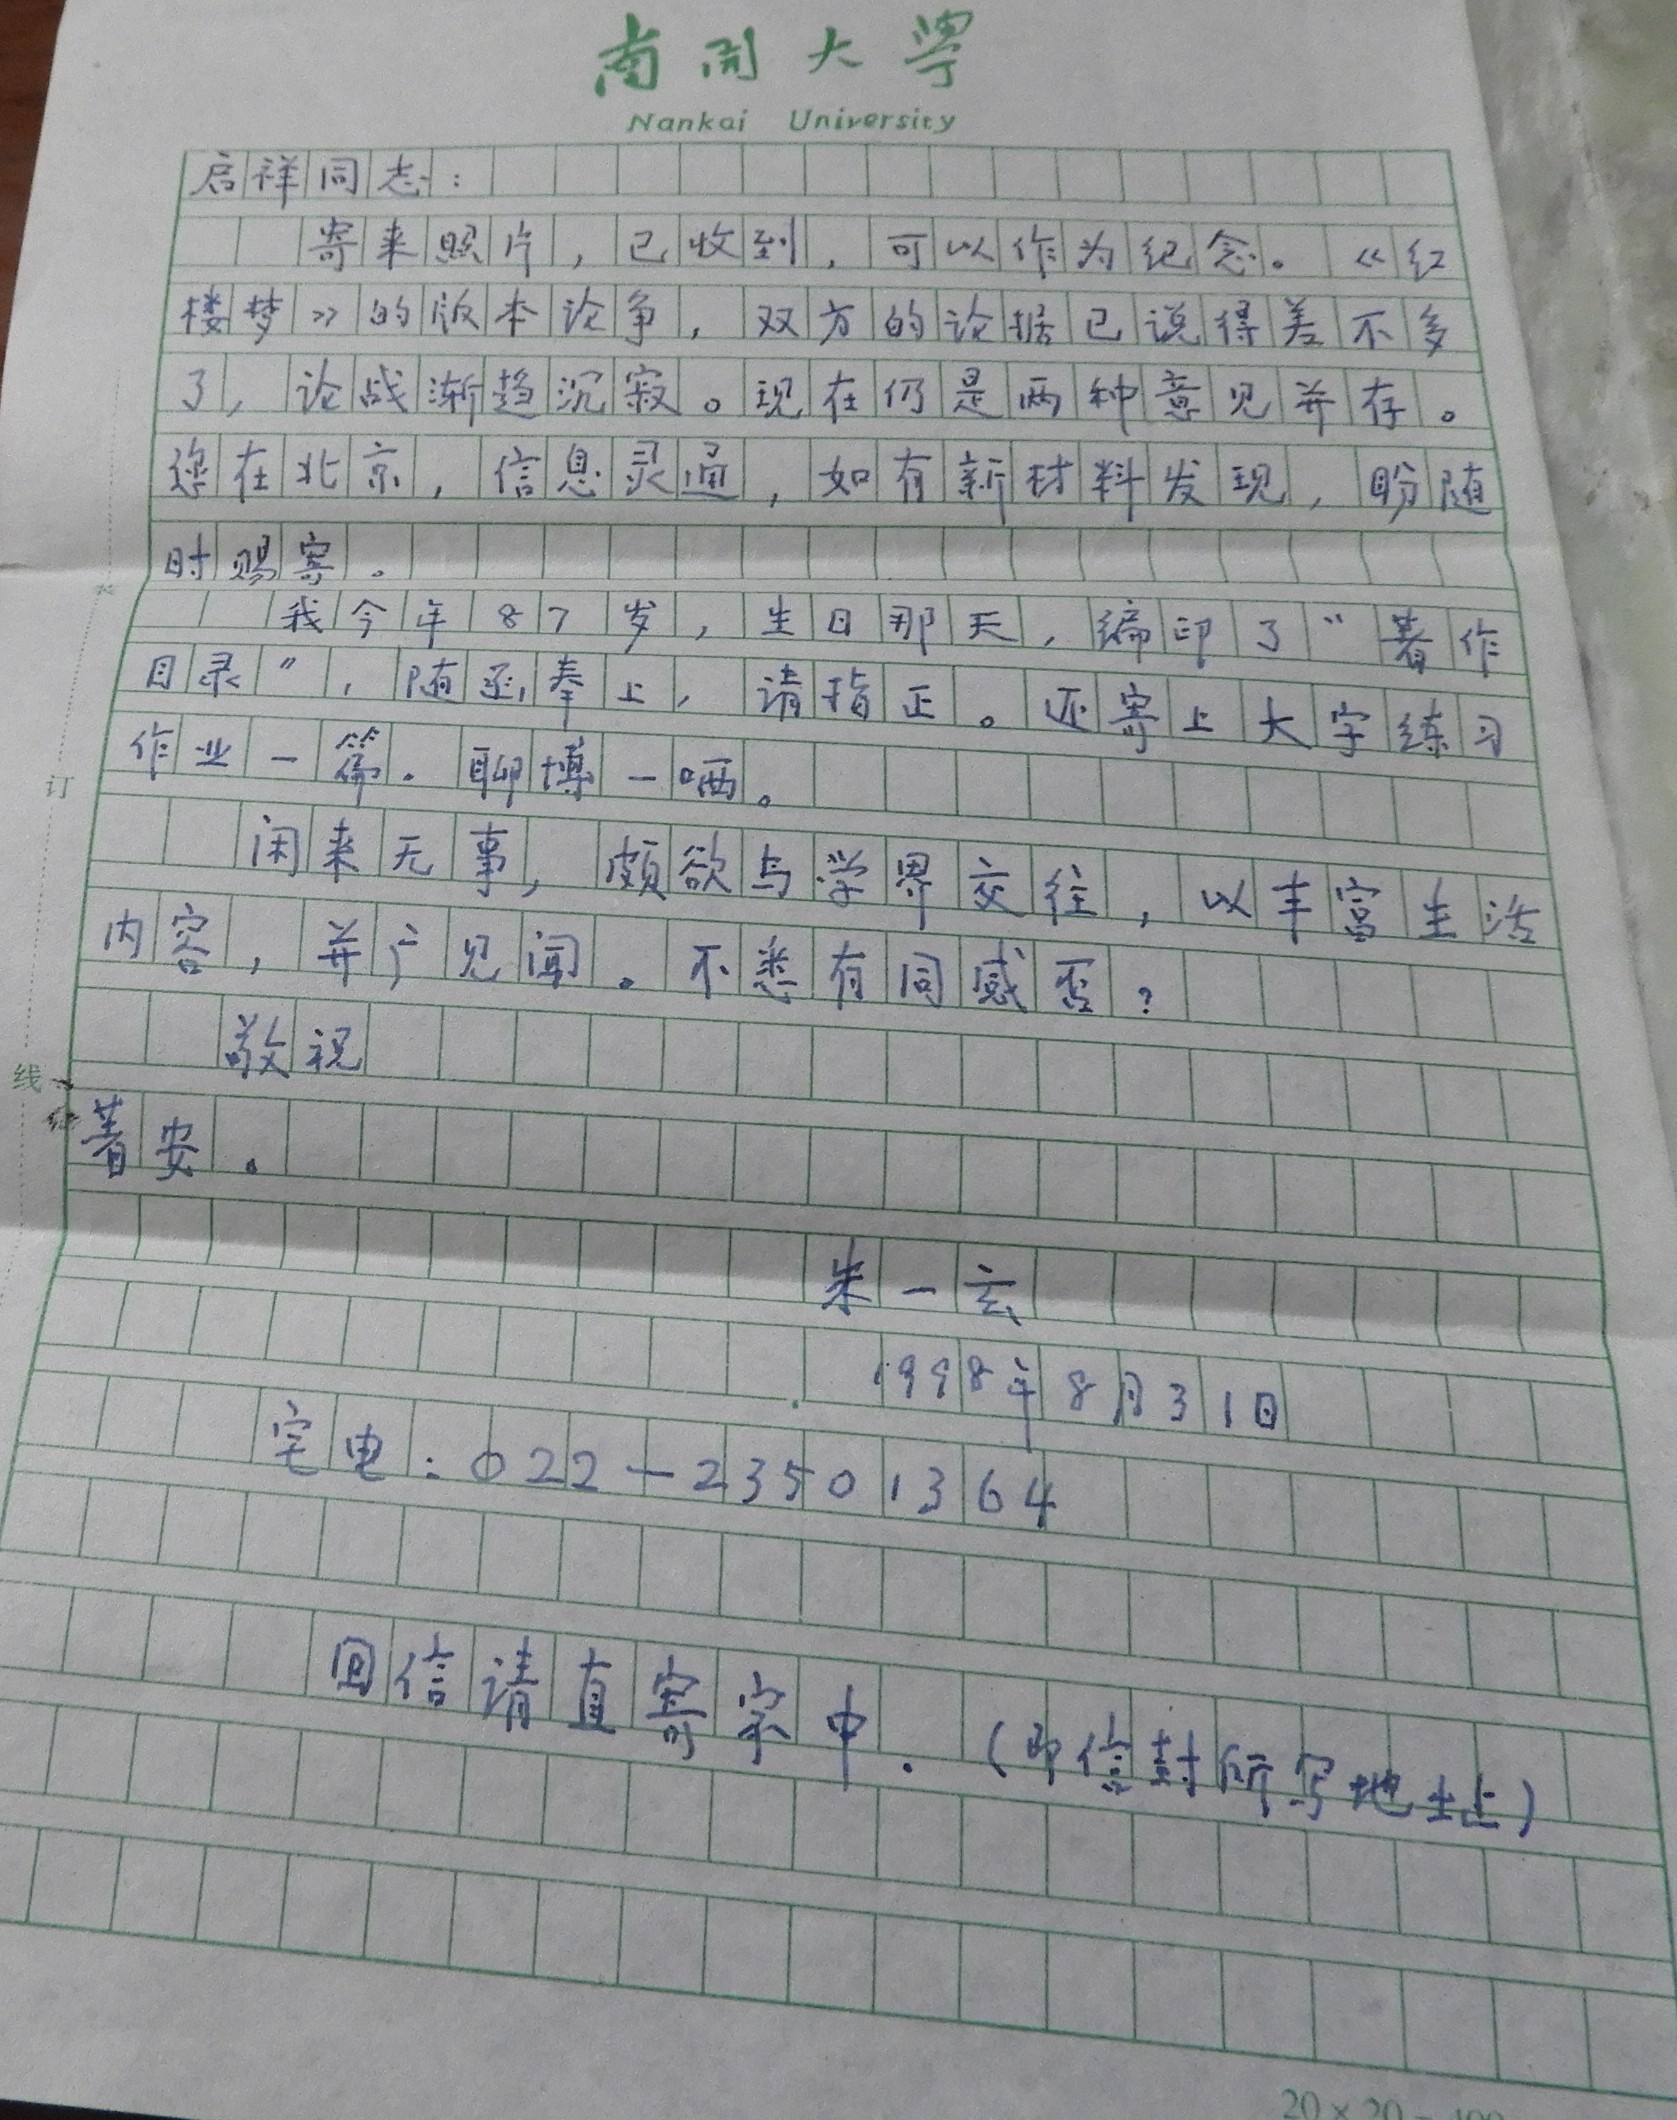 南开大学
Nankai University
启祥同志：
寄来照片，已收到，可以作为纪念。《红
楼梦》的版本论争，双方的论据已说得差不多
了，论战渐趋沉寂。现在仍是两种意见并存。
您在北京，信息灵通，如有新材料发现，盼随
时赐寄。
我今年87岁，生日那天，编印了“著作
目录”，随函奉上，请指正。还寄上大字练习
作业一篇．聊博一哂。
闲来无事，颇欲与学界交往，以丰富生活
内容，并广见闻。不悉有同感否？
敬祝
著安。
朱一玄
1998年8月31日
宅电：022—23501364
回信请直寄家中．（即信封所写地址）
订
线
20×20=400